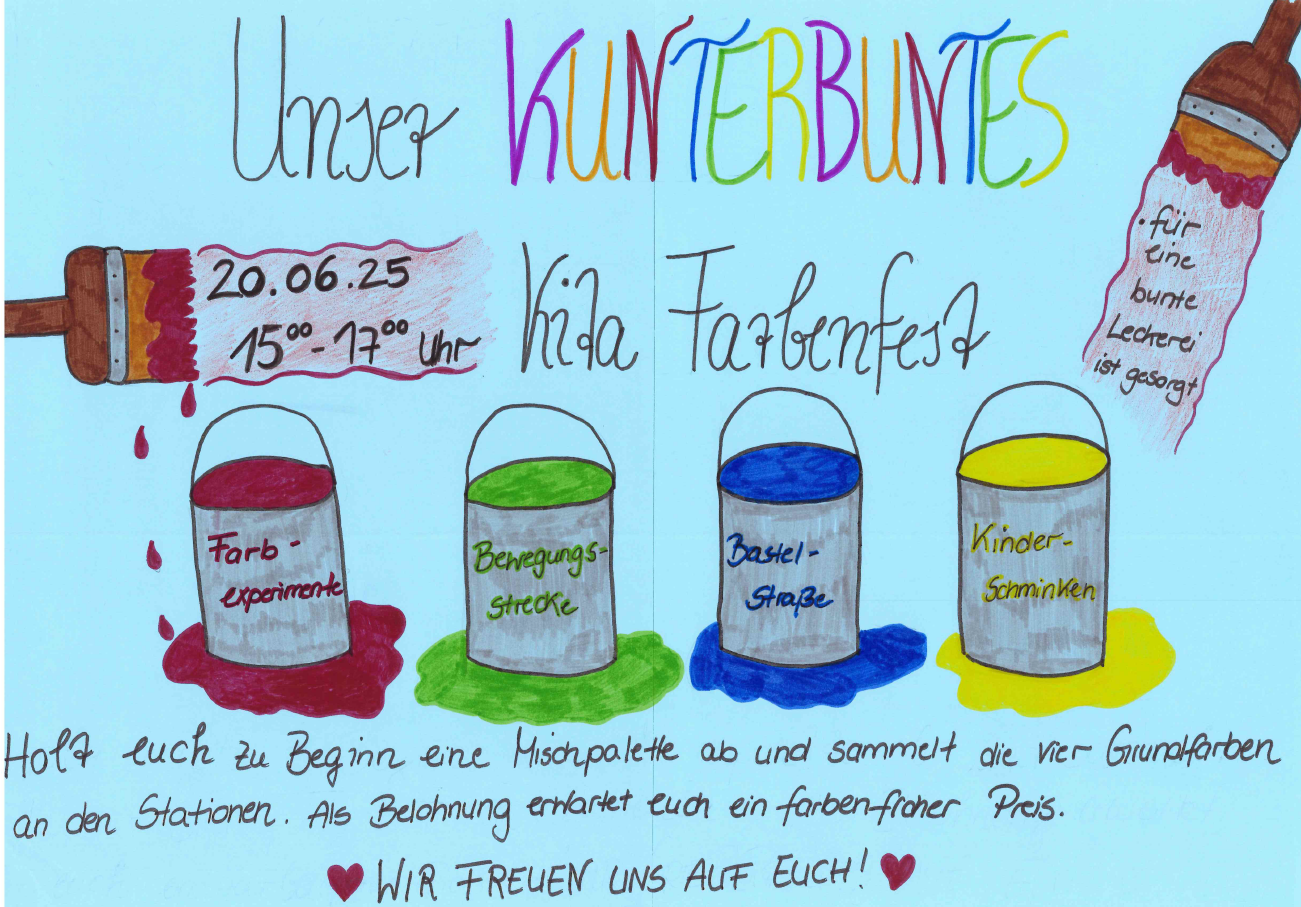 Unser KUNTERBUNTES
Kita Farbenfest
20.06.25
15⁰⁰-17⁰⁰ Uhr
• für
eine
bunte
Leckerei
ist gesorgt
Farb-
experimente
Bewegungs-
strecke
Bastel-
Straße
Kinder-
Schminken
Holt euch zu Beginn eine Mischpalette ab und sammelt die vier Grundfarben
an den Stationen. Als Belohnung erwartet euch ein farbenfroher Preis.
WIR FREUEN UNS AUF EUCH!